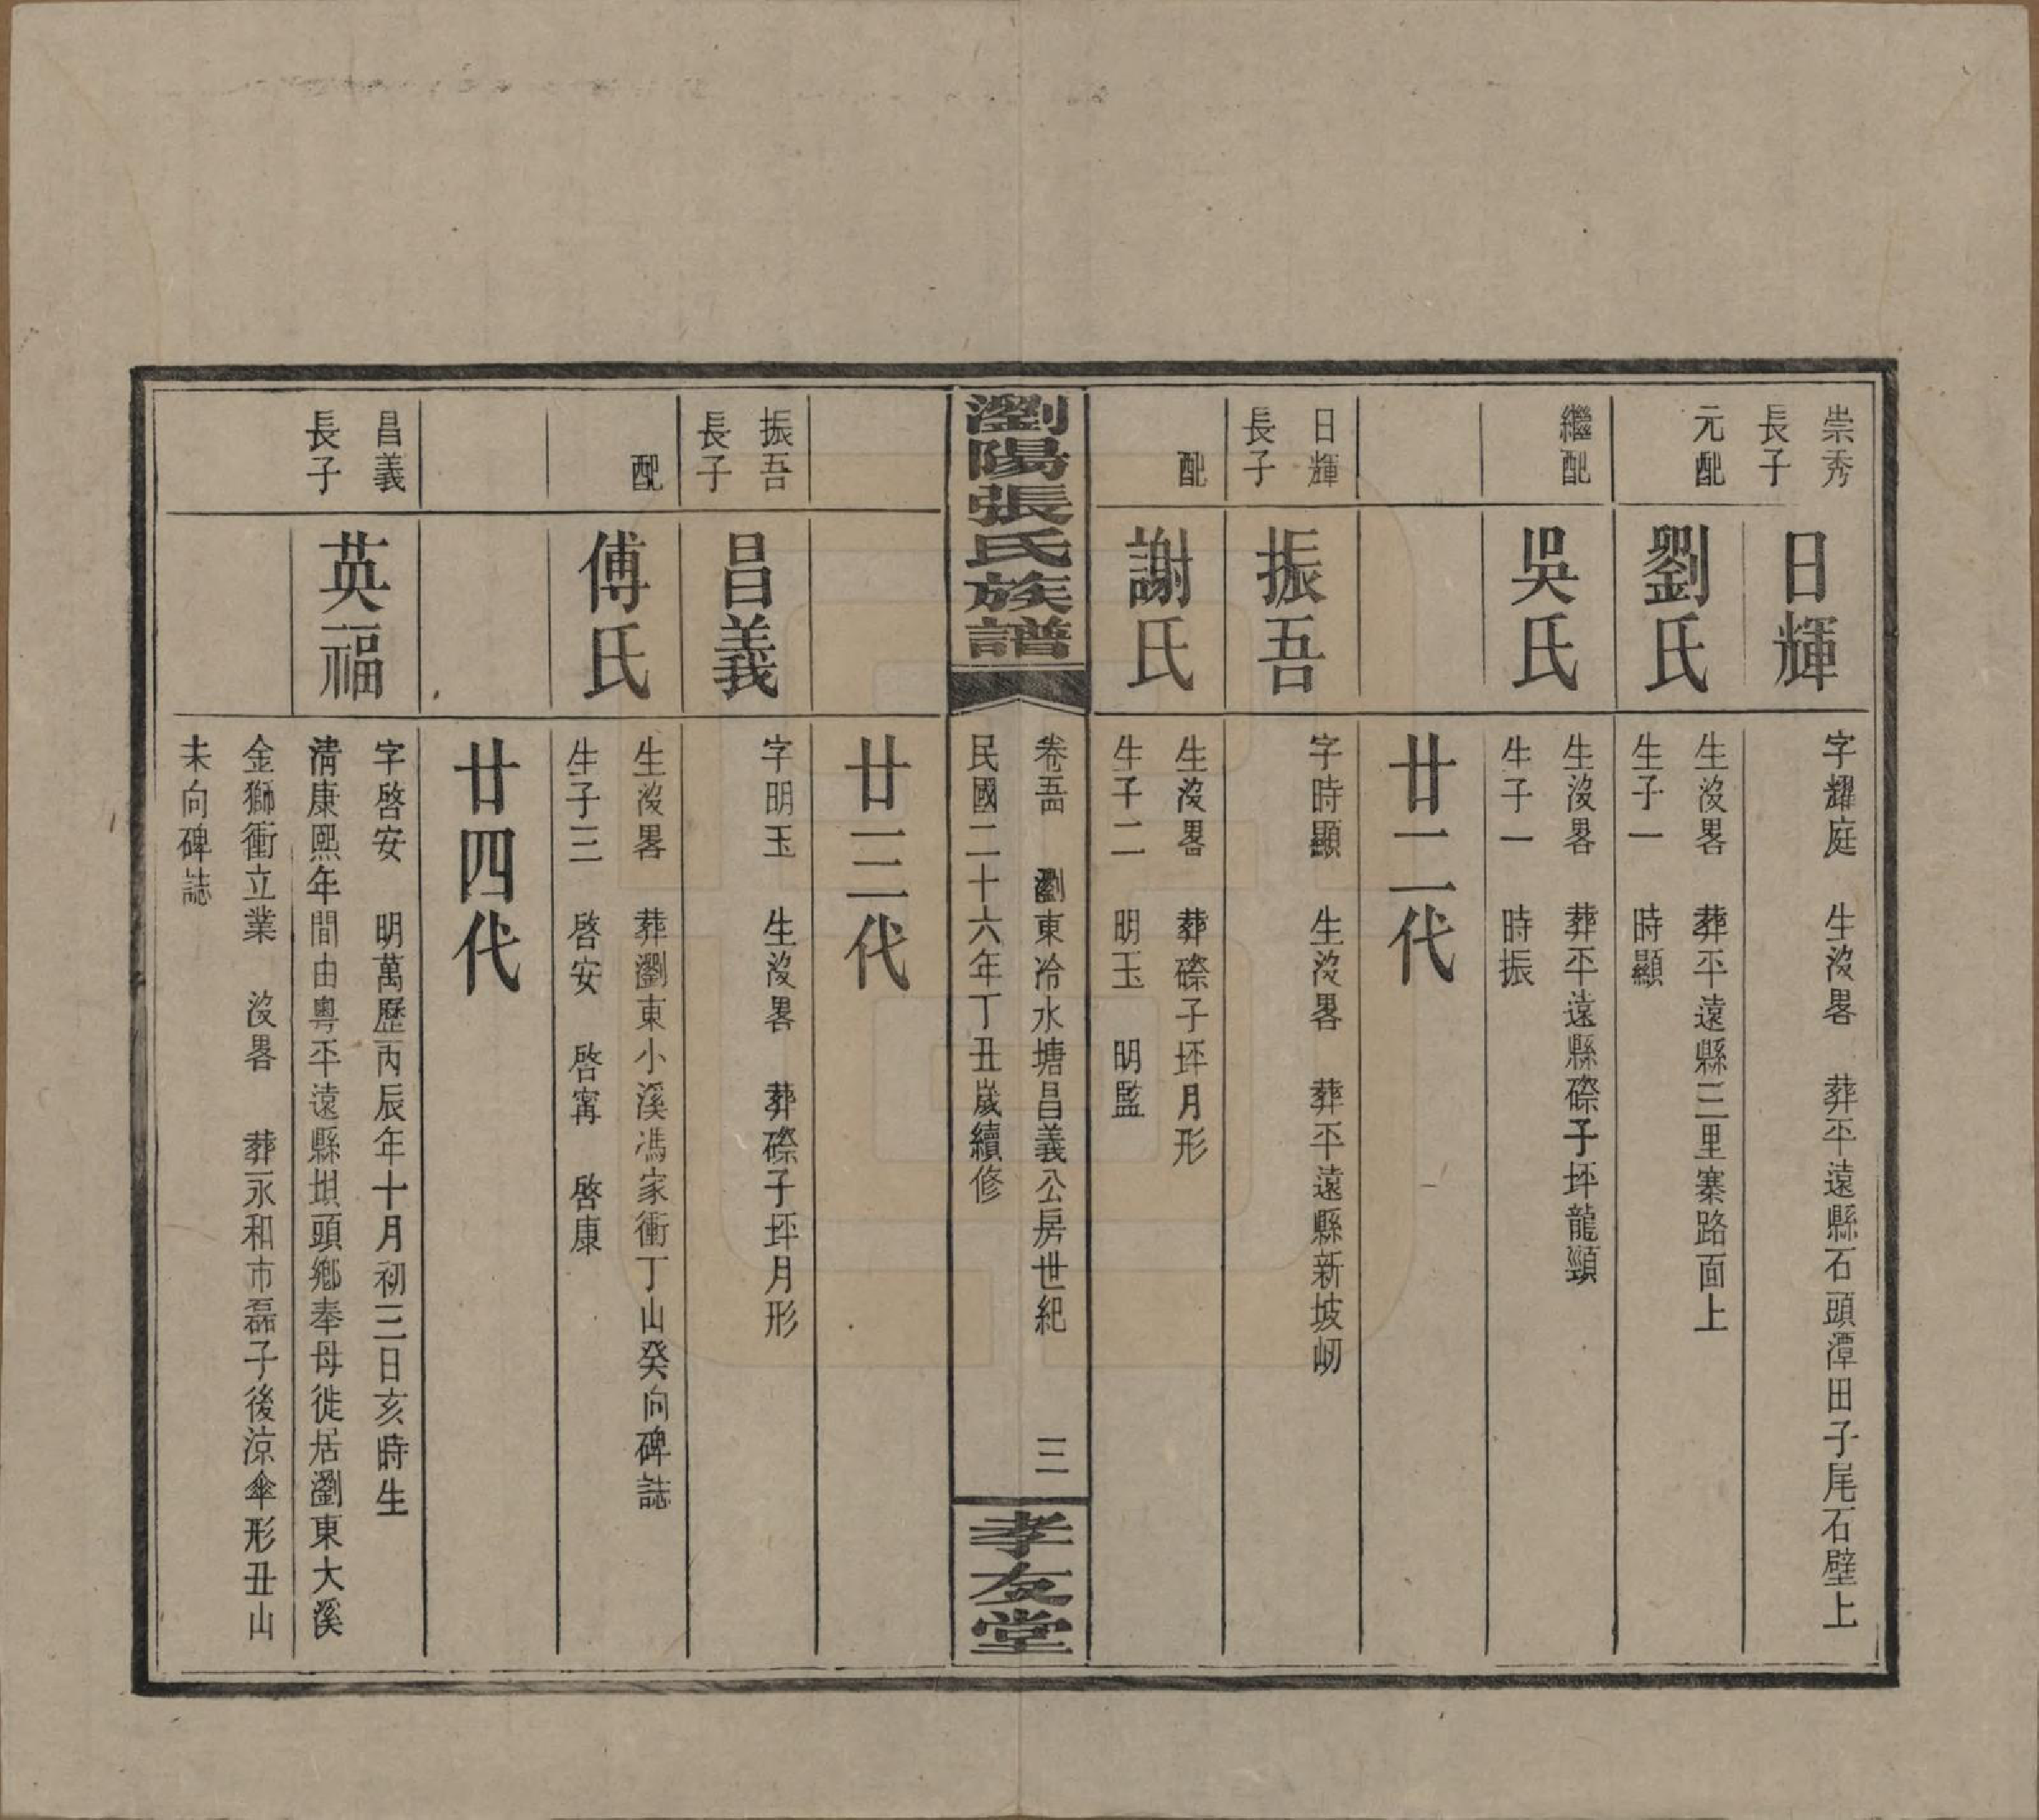 崇秀
長子
日輝
字耀庭　生沒畧　葬平遠縣石頭潭田子尾石壁上
元配
劉氏
生沒畧　葬平遠縣三里寨路面上
生子一　時顯
繼配
吳氏
生沒畧　葬平遠縣磜子坪龍頸
生子一　時振
廿二代
日輝
長子
振吾
字時顯　生沒畧　葬平遠縣新坡㘭
配
謝氏
生沒畧　葬磜子坪月形
生子二　明玉　明監
瀏陽張氏族譜
卷　瀏東冷水塘昌義公房世紀　三
民國二十六年丁丑歲續修
孝友堂
廿三代
振吾
長子
昌義
字明玉　生沒畧　葬磜子坪月形
配
傅氏
生沒畧　葬瀏東小溪馮家衝丁山癸向碑誌
生子三　啓安　啓寗　啓康
廿四代
昌義
長子
英福
字啓安　明萬歷丙辰年十月初三日亥時生
清康熙年間由粵平遠縣垻頭鄉奉母徙居瀏東大溪
金獅衝立業　沒畧　葬永和市磊子後涼傘形丑山
未向碑誌